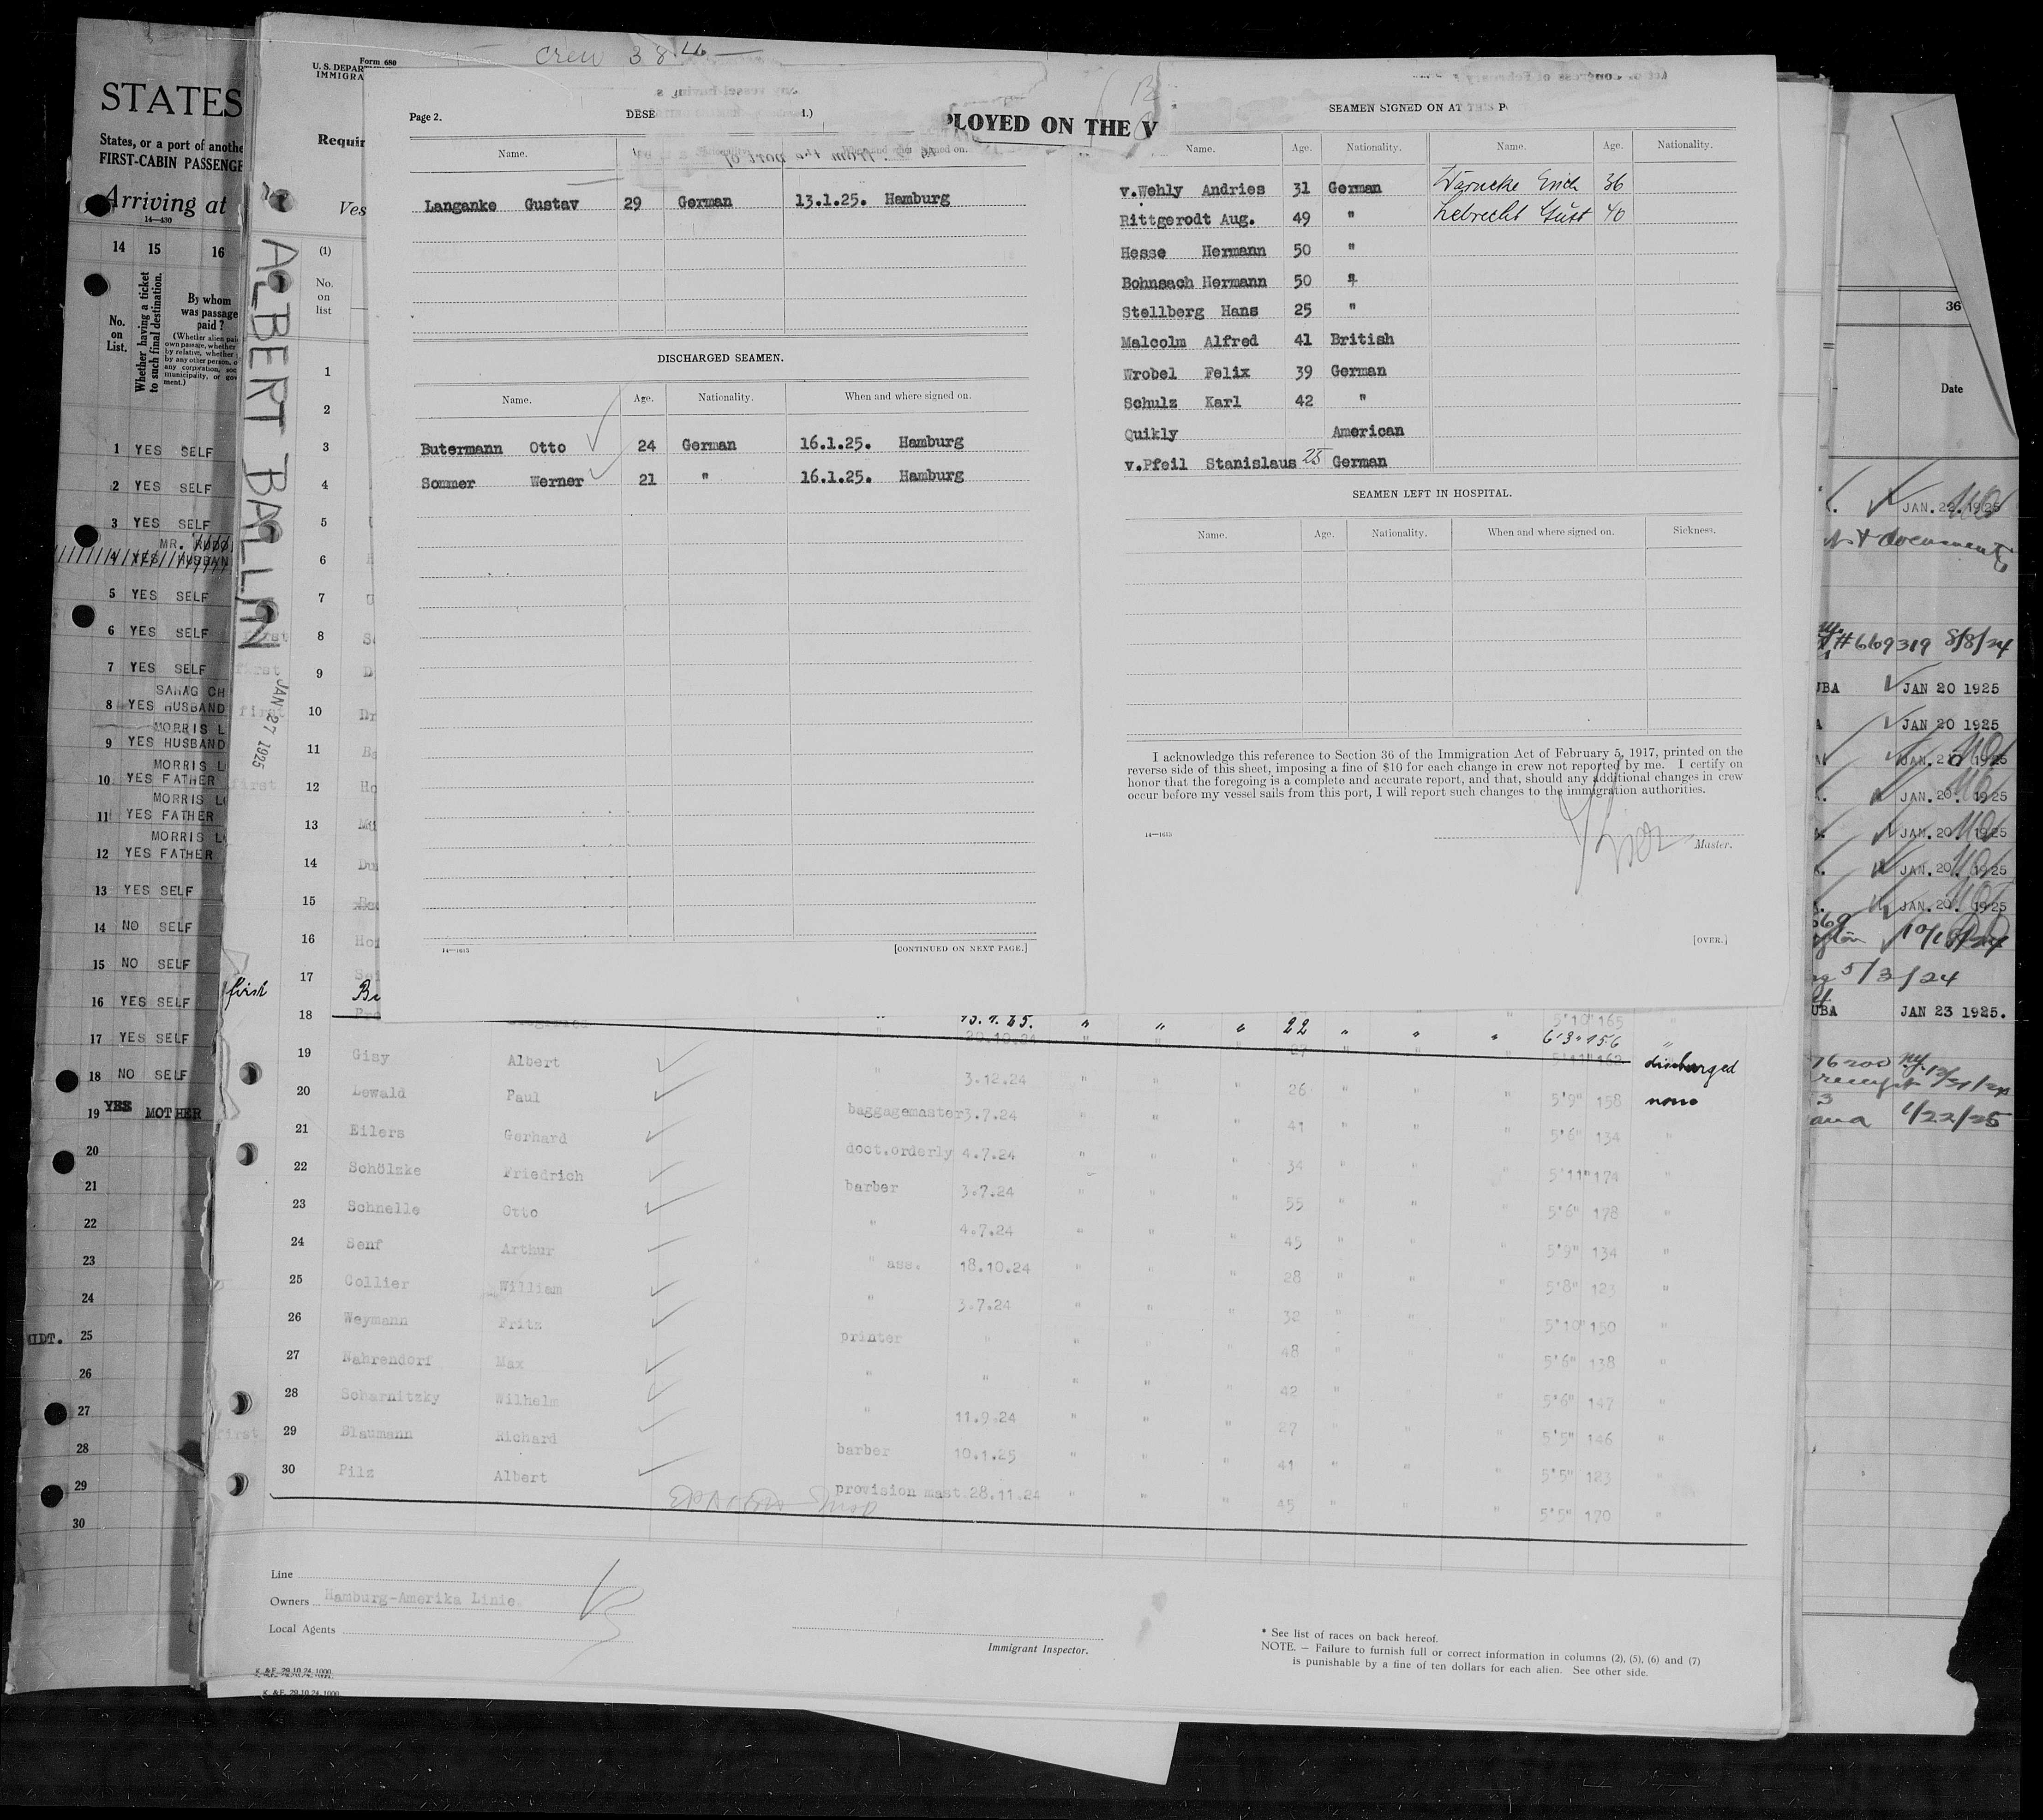 crew 38
Form 680
U. S. DEPAR
IMMIGRA
Requir
Ves
(1)
No.
on
list
ALBERT BALLIN
JAN 27 1925
STATES
States, or a port of anothe
FIRST-CABIN PASSENGE
Arriving at
14—430
14 15 16
No.
on
List.
Whether having a ticket
to such final destination.
By whom
was passage
paid?
(Whether alien pai
own passage, whether
by relative, whether
by any other person, o
any corporation, soc
municipality, or gov
ment.)
1 YES SELF
2 YES SELF
3 YES SELF
MR. RUDO
4 YES HUSBAN
5 YES SELF
6 YES SELF
7 YES SELF
SAHAG CH
8 YES HUSBAND
MORRIS L
9 YES HUSBAND
MORRIS L
10 YES FATHER
MORRIS LO
11 YES FATHER
MORRIS L
12 YES FATHER
13 YES SELF
14 NO SELF
15 NO SELF
16 YES SELF
17 YES SELF
18 NO SELF
19 YES MOTHER
20
21
22
23
24
MIDT. 25
26
27
28
29
30
Page 2.
DESE
1.)
PLOYED ON THE V
Name.
When and where signed on.
Langanke Gustav 29 German 13.1.25. Hamburg
DISCHARGED SEAMEN.
Name. Age. Nationality. When and where signed on.
Butermann Otto 24 German 16.1.25. Hamburg
Sommer Werner 21 " 16.1.25. Hamburg
14—1613
[CONTINUED ON NEXT PAGE.]
SEAMEN SIGNED ON AT THIS P
Name. Age. Nationality. Name. Age. Nationality.
v.Wehly Andries 31 German Warncke Erich 36
Rittgerodt Aug. 49 " Lebrecht Gust 40
Hesse Hermann 50 "
Bohnsach Hermann 50 "
Stellberg Hans 25 "
Malcolm Alfred 41 British
Wrobel Felix 39 German
Schulz Karl 42 "
Quikly American
v.Pfeil Stanislaus 25 German
SEAMEN LEFT IN HOSPITAL.
Name. Age. Nationality. When and where signed on. Sickness.
I acknowledge this reference to Section 36 of the Immigration Act of February 5, 1917, printed on the
reverse side of this sheet, imposing a fine of $10 for each change in crew not reported by me. I certify on
honor that the foregoing is a complete and accurate report, and that, should any additional changes in crew
occur before my vessel sails from this port, I will report such changes to the immigration authorities.
14—1613
Master.
[OVER.]
1
2
3
4
5
6
7
first 8
first 9
first 10
11
first 12
13
14
15
16
17
first
18 " " " 22 " " " 5'10" 165
20.10.24 6'3" 156 "
19 Gisy Albert " 3.12.24 " " " 27 5'11" 162 discharged
20 Lewald Paul baggagemaster 3.7.24 " " " 26 " " " 5'9" 158 none
21 Eilers Gerhard doct.orderly 4.7.24 " " " 41 " " " 5'6" 134 "
22 Schölzke Friedrich barber 3.7.24 " " " 34 " " " 5'11" 174 "
23 Schnelle Otto " 4.7.24 " " " 55 " " " 5'6" 178 "
24 Senf Arthur " ass. 18.10.24 " " " 45 " " " 5'9" 134 "
25 Collier William " 3.7.24 " " " 28 " " " 5'8" 123 "
26 Weymann Fritz printer " " " " 38 " " " 5'10" 150 "
27 Nahrendorf Max " " " " " 48 " " " 5'6" 138 "
28 Scharnitzky Wilhelm " 11.9.24 " " " 42 " " " 5'6" 147 "
first 29 Blaumann Richard barber 10.1.25 " " " 27 " " " 5'5" 146 "
30 Pilz Albert provision mast. 28.11.24 " " " 41 " " " 5'5" 123 "
45 " " " 5'5" 170 "
Line
Owners Hamburg-Amerika Linie
Local Agents
Immigrant Inspector.
* See list of races on back hereof.
NOTE. — Failure to furnish full or correct information in columns (2), (5), (6) and (7)
is punishable by a fine of ten dollars for each alien. See other side.
K. & F. 29.10.24.1000
K. & F. 29.10.24.1000
36
Date
JAN. 22. 1925
documents
#669319 8/8/24
UBA JAN 20 1925
JAN 20 1925
JAN. 20 1925
JAN. 20. 1925
JAN. 20. 1925
JAN. 20. 1925
JAN. 20. 1925
5/3/24
UBA JAN 23 1925.
1/22/25